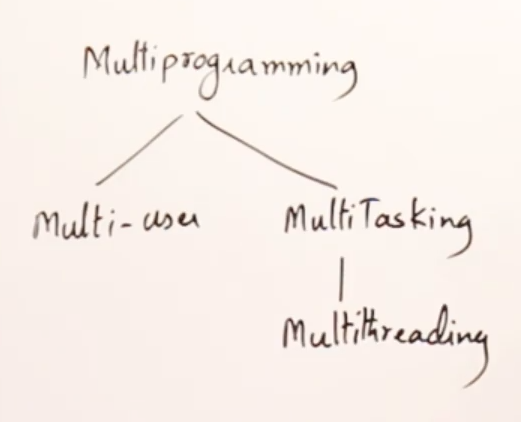 Multiprogramming
Multi-user MultiTasking
Multithreading